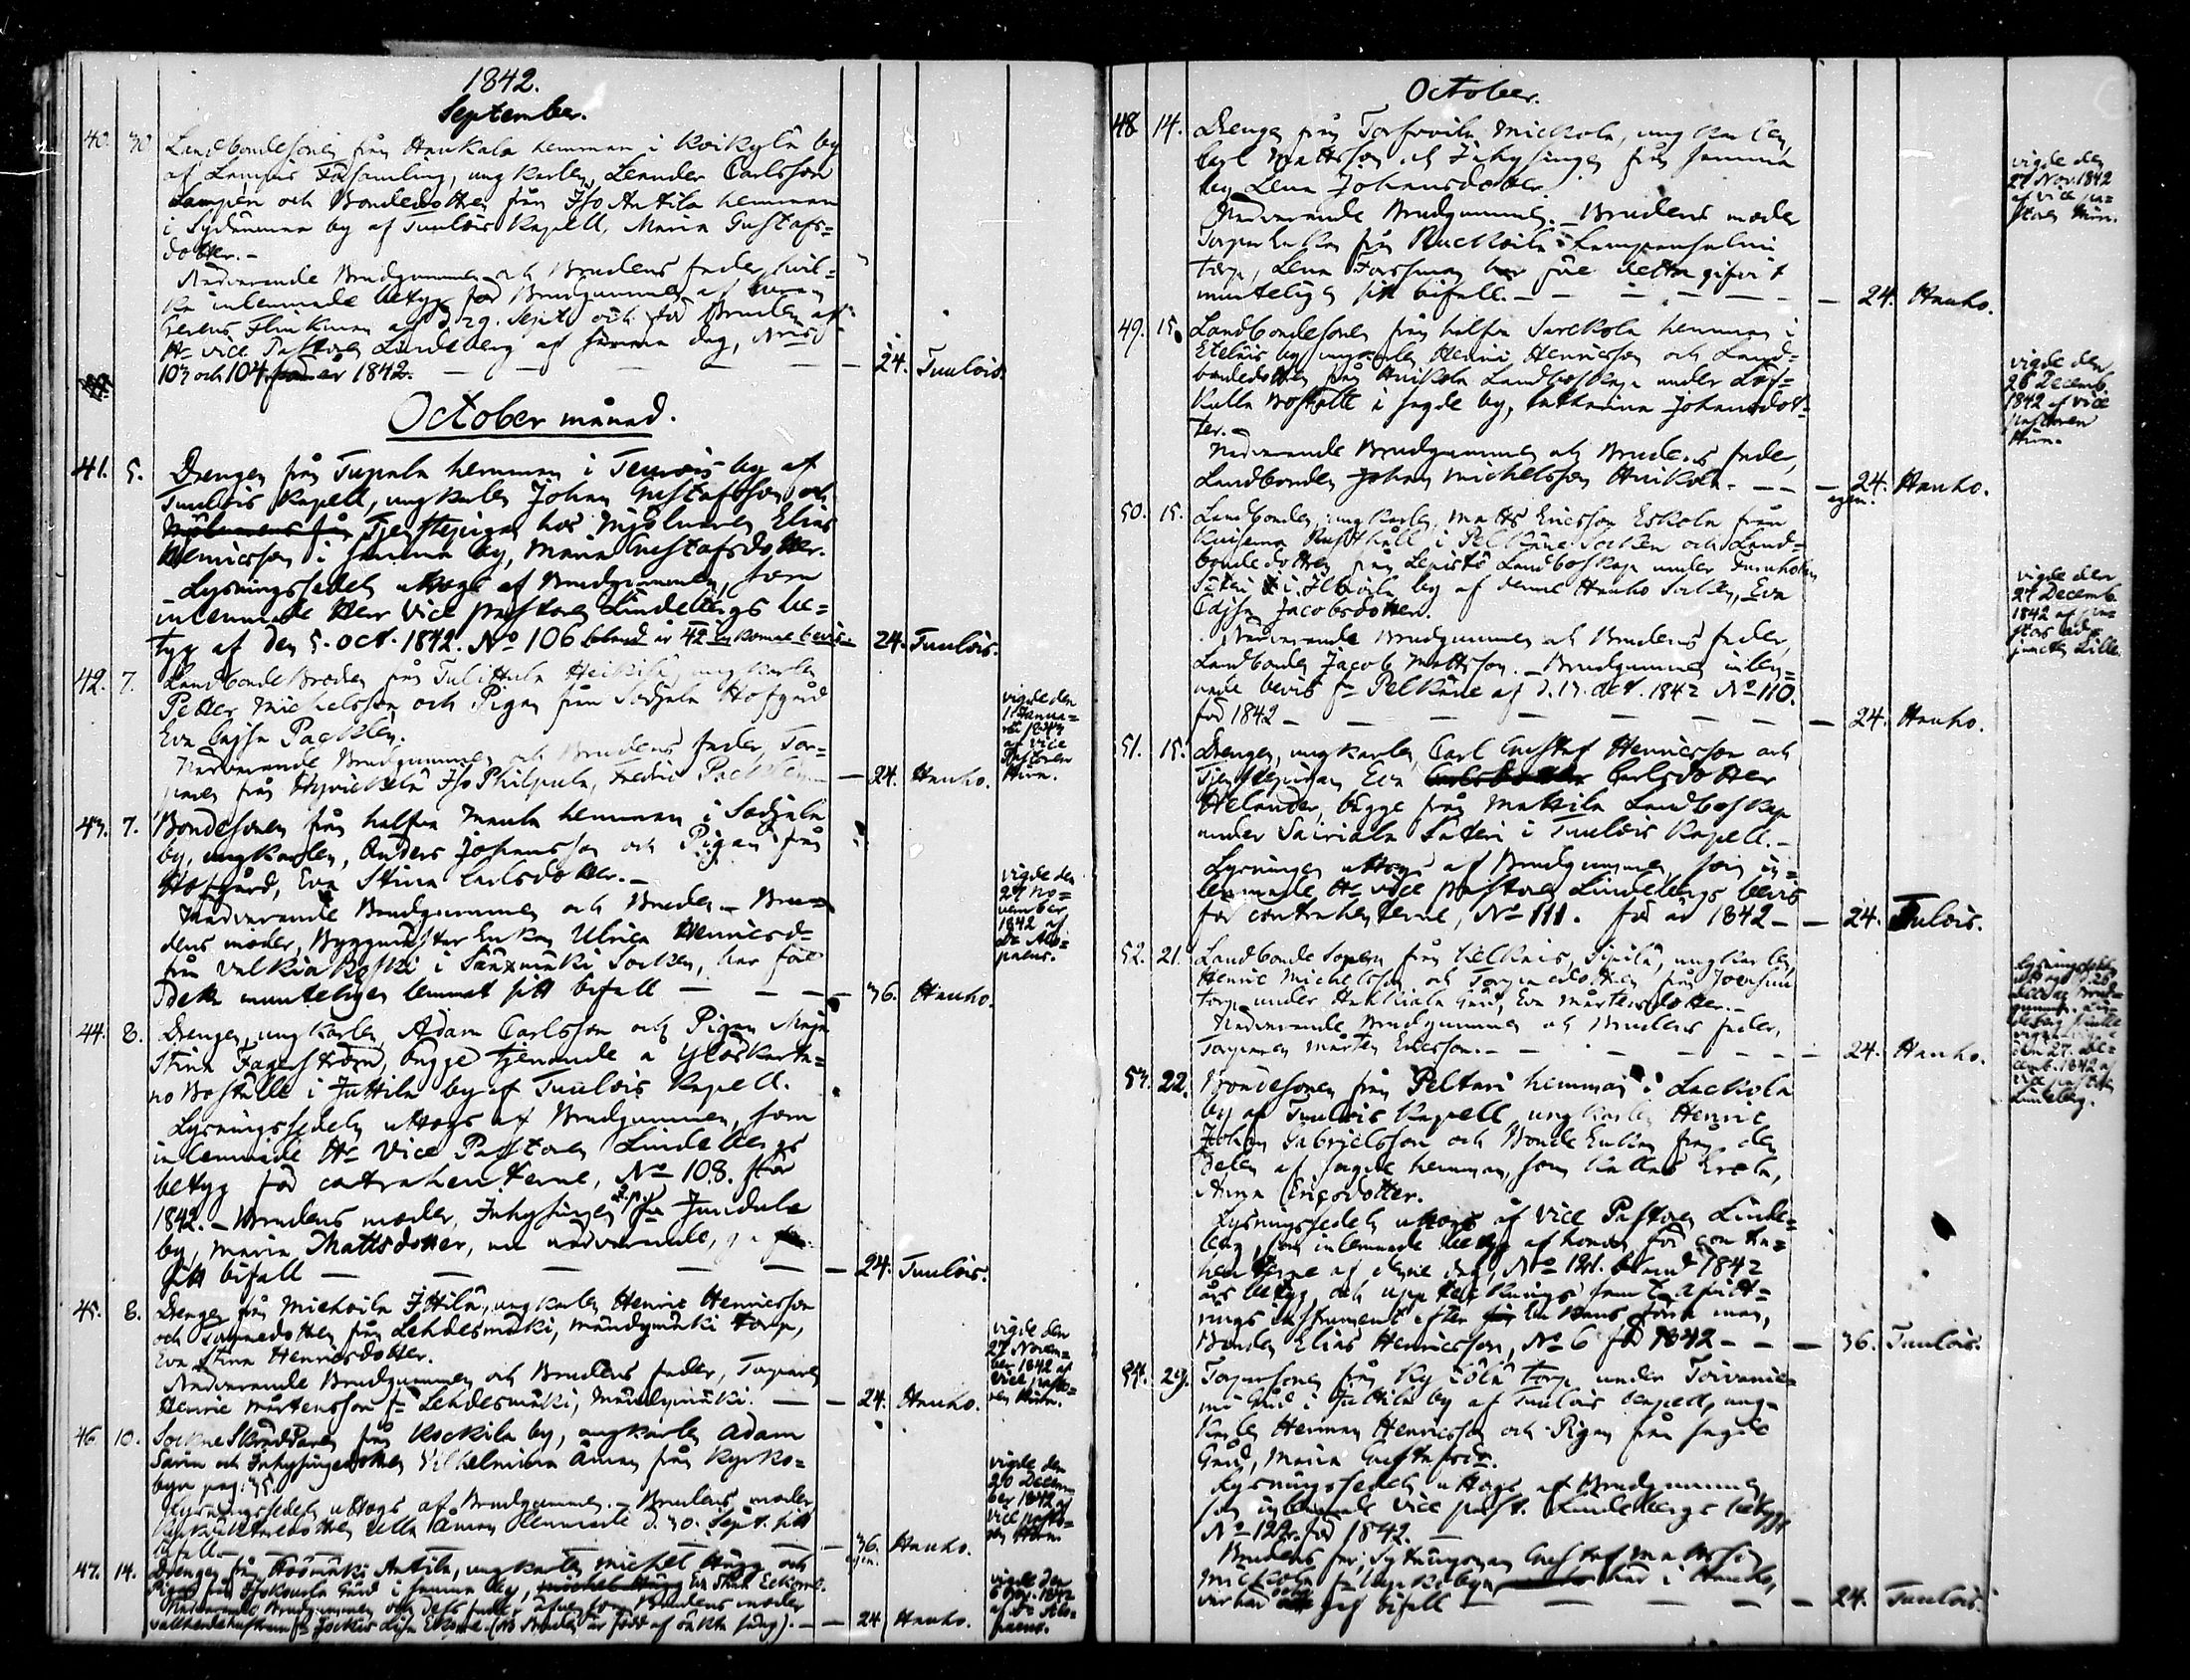 1842.
September.
40. 30. Landbondesonen från Haukala hemman i Koikylä by
af Lampis Församling, ungkarlen, Leander Carlsson
Lampén och Bondedottren från Iso Anttila hemman
i Sydänmaa by af Tuulois Kapell, Maria Gustafs=
dotter. -
Närvarande Brudgummen och Brudens fader, hvil=
ka inlemnade betyg för Brudgummen af
Flinkman af d. 29. Sept. och för Bruden af
Hr vice Pastoren Lindeberg af samma dag, Nris
103 och 104 för år 1842. — 24. Tuulois.
October månad.
41. 5. Drengen från Tupala hemman i Teuvois by af
Tuulois Kapell, ungkarlen Johan Gustafsson och
Tjenstepigan hos Mjölnaren Elias
Henricsson i samma by, Maria Gustafsdotter.
Lysningssedeln uttogs af Brudgummen, som
inlemnade Herr Vice pastoren Lindebergs be=
tyg af den 5. Oct. 1842. No 106 bland år 42 inkomne bevis — 24. Tuulois.
42. 7. Landbonde Brodren från Tulittula Heikilä, ungkarlen
Petter Michelsson och Pigan från Sodjala Hofgård
Eva Cajsa Packlen.
Närvarande Brudgummen och Brudens fader, Tor=
paren från Hyrickälä Iso Philpula, Fredric Packlen — 24. Hauho.
vigde den
1 Janua=
ri 1843
af vice
Pastoren
Hirn.
43. 7. Bondesonen från halfva Maula hemman i Sodjala
by, ungkarlen, Anders Johansson och Pigan från
Hofgård, Eva Stina Carlsdotter. -
Närvarande Brudgummen och Bruden. - Bru=
dens moder, Byggmästar Enkan Ulrica Henricsd=
från Valkiakoski i Sääxmäki Socken, har före
detta munteligen lemnat sitt bifall — 36. Hauho.
vigde den
27 No=
vember
1842 af
Dr Alo=
paeus.
44. 8. Drengen, ungkarlen, Adam Carlsson och Pigan Maja
Stina Fagerström, bägge tjenande å Ylöskarta=
no Boställe i Juttila by af Tuulois Kapell.
Lysningssedeln uttogs af Brudgummen, som
inlemnade Hr Vice Pastoren Lindebergs
betyg för contrahenterne, No 108. för
1842. - Brudens moder, Inhysingen fr Juudula
by, Maria Mattsdotter, nu närvarande,
sitt bifall — 24. Tuulois.
45. 8. Drengen från Michoila Ittilä, ungkarlen Henric Henricsson
och Torparedottren från Lehdesmäki, Mändymäki torp,
Eva Stina Henricsdotter.
Närvarande Brudgummen och Brudens fader, Torparen
Henric Mårtensson fr Lehdesmäki, Mändymäki. — 24. Hauho.
vigde den
27. Novem=
ber 1842 af
vice pasto=
ren Hirn.
46. 10. Sockne Skräddaren från Kockila by, ungkarlen Adam
Sarin och Inhysingedottren Wilhelmina Åman från Kyrko=
byn pag: 35.
Lysningssedeln uttogs af Brudgummen. - Brudens moder,
Ulla Åman lemnade d. 30. Sept. sitt
bifall. — 36. Hauho.
vigde den
20 Decem=
ber 1842 af
vice pasto=
ren Hirn.
47. 14. Drengen från Hosmäki Anttila, ungkarlen Michel Hägg och
Pigan från Isokoula Gård i samma by, Eva Stina Eckqvist.
Närvarande Brudgummen och dess fader äfven som Brudens moder
(NB Bruden är född af oäkta säng). — 24. Hauho.
vigde den
6 Nov. 1842
af Dr Alo=
paeus.
October.
48. 14. Drengen från Torfvoila Mickola, ungkarlen,
Carl Mattsson och Inhysingen från samma
by, Lena Johansdotter.
Närvarande Brudgummen. - Brudens moder
Torpar Enkan från Ruckoila Lampensalmi
torp, Lena Forssman har före detta gifvit
munteligen sitt bifall. — 24. Hauho.
vigde den
27 Nov. 1842
af vice pa=
storen Hirn.
49. 15. Landbondesonen från halfva Sarekola hemman i
Etelais by, ungkarlen Henric Henricsson och Land=
bondedottren från Huikola Landboskap under Löf=
kulla Boställe i sagde by, Catharina Johansdot=
ter.
Närvarande Brudgummen och Brudens fader,
Landbonden Johan Michelsson Huikola. — 24. Hauho.
vigde den
26 Decemb.
1842 af vice
pastoren
Hirn.
50. 15. Landbonden, ungkarlen, Matts Ericsson Eskola från
Rusthåll i Pelkäne Socken och Land=
bondedottren från Lepistö Landboskap under
Säteri i by af denne Hauho Socken, Eva
Cajsa Jacobsdotter.
Närvarande Brudgummen och Brudens fader,
Landbonden Jacob Mattsson. - Brudgummen inlem=
nade bevis fr Pelkäne af d. 13. Oct. 1842 No 110.
för 1842 — 24. Hauho.
vigde den
27 Decemb.
1842 af pa=
stors ad=
juncten Lille.
51. 15. Drengen, ungkarlen, Carl Gustaf Henricsson och
Tjenstepigan Eva Carlsdotter
Helander, bägge från Mattila Landboskap
under Sairiala Säteri i Tuulois Kapell. -
Lysningen uttogs af Brudgummen, som in=
lemnade Hr vice pastoren Lindebergs bevis
för contrahenterne, No 111. för år 1842 — 24. Tulois.
52. 21. Landbonde Sonen från Hellnäs, Sipilä, ungkarlen
Henric Michelsson och Torparedottren från Joensuu
torp under Hahkiala Gård, Eva Mårtensdotter. -
Närvarande Brudgummen och Brudens fader,
Torparen Mårten Ericsson. — 24. Hauho.
Lysningssedeln
den 27. De=
cemb. 1842 af
vice pastoren
Lindeberg.
53. 22. Bondesonen från Peltari hemman i Lackola
by af Tuulois Kapell, ungkarlen Henric
Johan Gabrielsson och Bonde Enkan från den
delen af sagde hemman, som kallas Erola,
Anna Ericsdotter.
Lysningssedeln uttogs af Vice Pastoren Linde=
berg, som inlemnade betyg af honom för contra=
henterne af denne dag, No 121. bland 1842
års betyg, och upptecknings samt afvitt=
rings instrument efter Enkans förra man,
Bonden Elias Henricsson, No 6 för 1842 — 36. Tuulois.
54. 29. Torparsonen från Kylölä torp under Toivanie=
mi Gård i Juttila by af Tuulois Capell, ung=
karlen Herman Henricsson och Pigan från sagde
Gård, Maria Gustafsdr.
Lysningssedeln uttogs af Brudgummen,
som inlemnade Vice past. Lindebergs betyg
No 122. för 1842. —
Brudens far, Sytningsman Gustaf Mattsson
Mickola fr Kyrkobyn här i Hauho,
gaf bifall — 24. Tuulois.